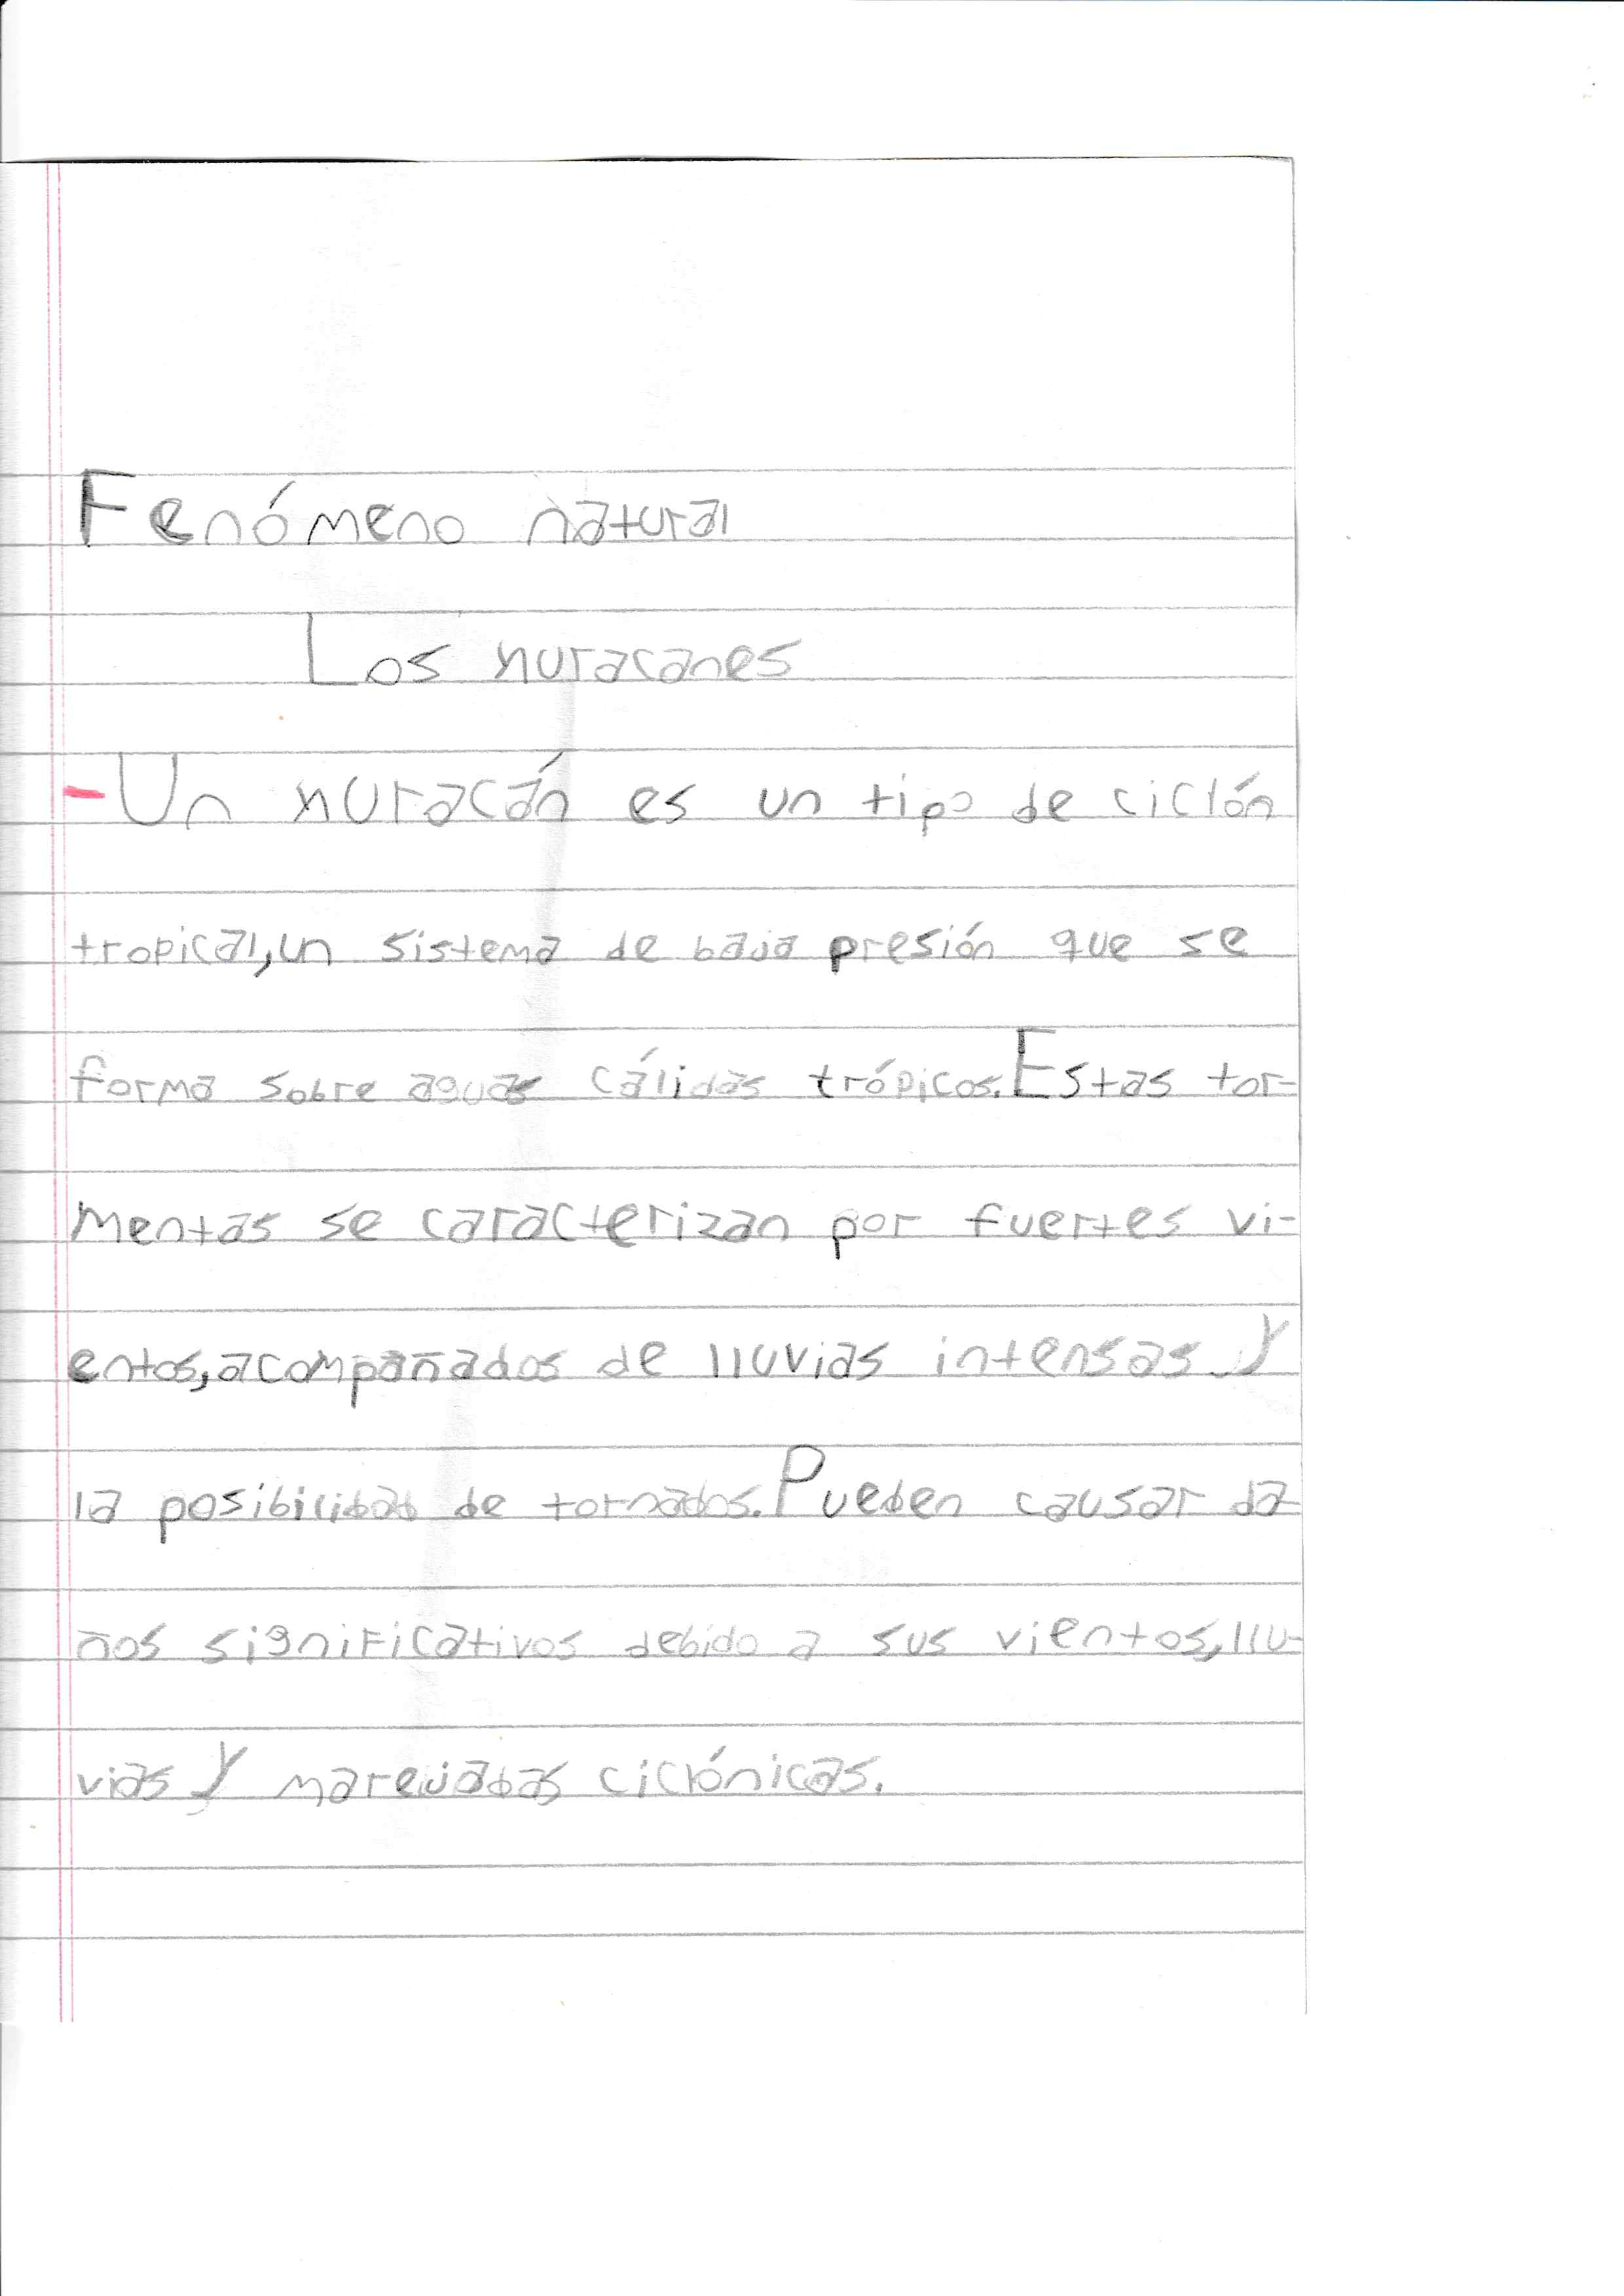 Fenómeno natural
Los huracanes
-Un huracán es un tipo de ciclón
tropical, un sistema de baja presión que se
forma sobre aguas cálidas trópicos. Estas tor-
mentas se caracterizan por fuertes vi-
entos, acompañados de lluvias intensas y
la posibilidad de tornados. Pueden causar da-
ños significativos debido a sus vientos, llu-
vias y marejadas ciclónicas.